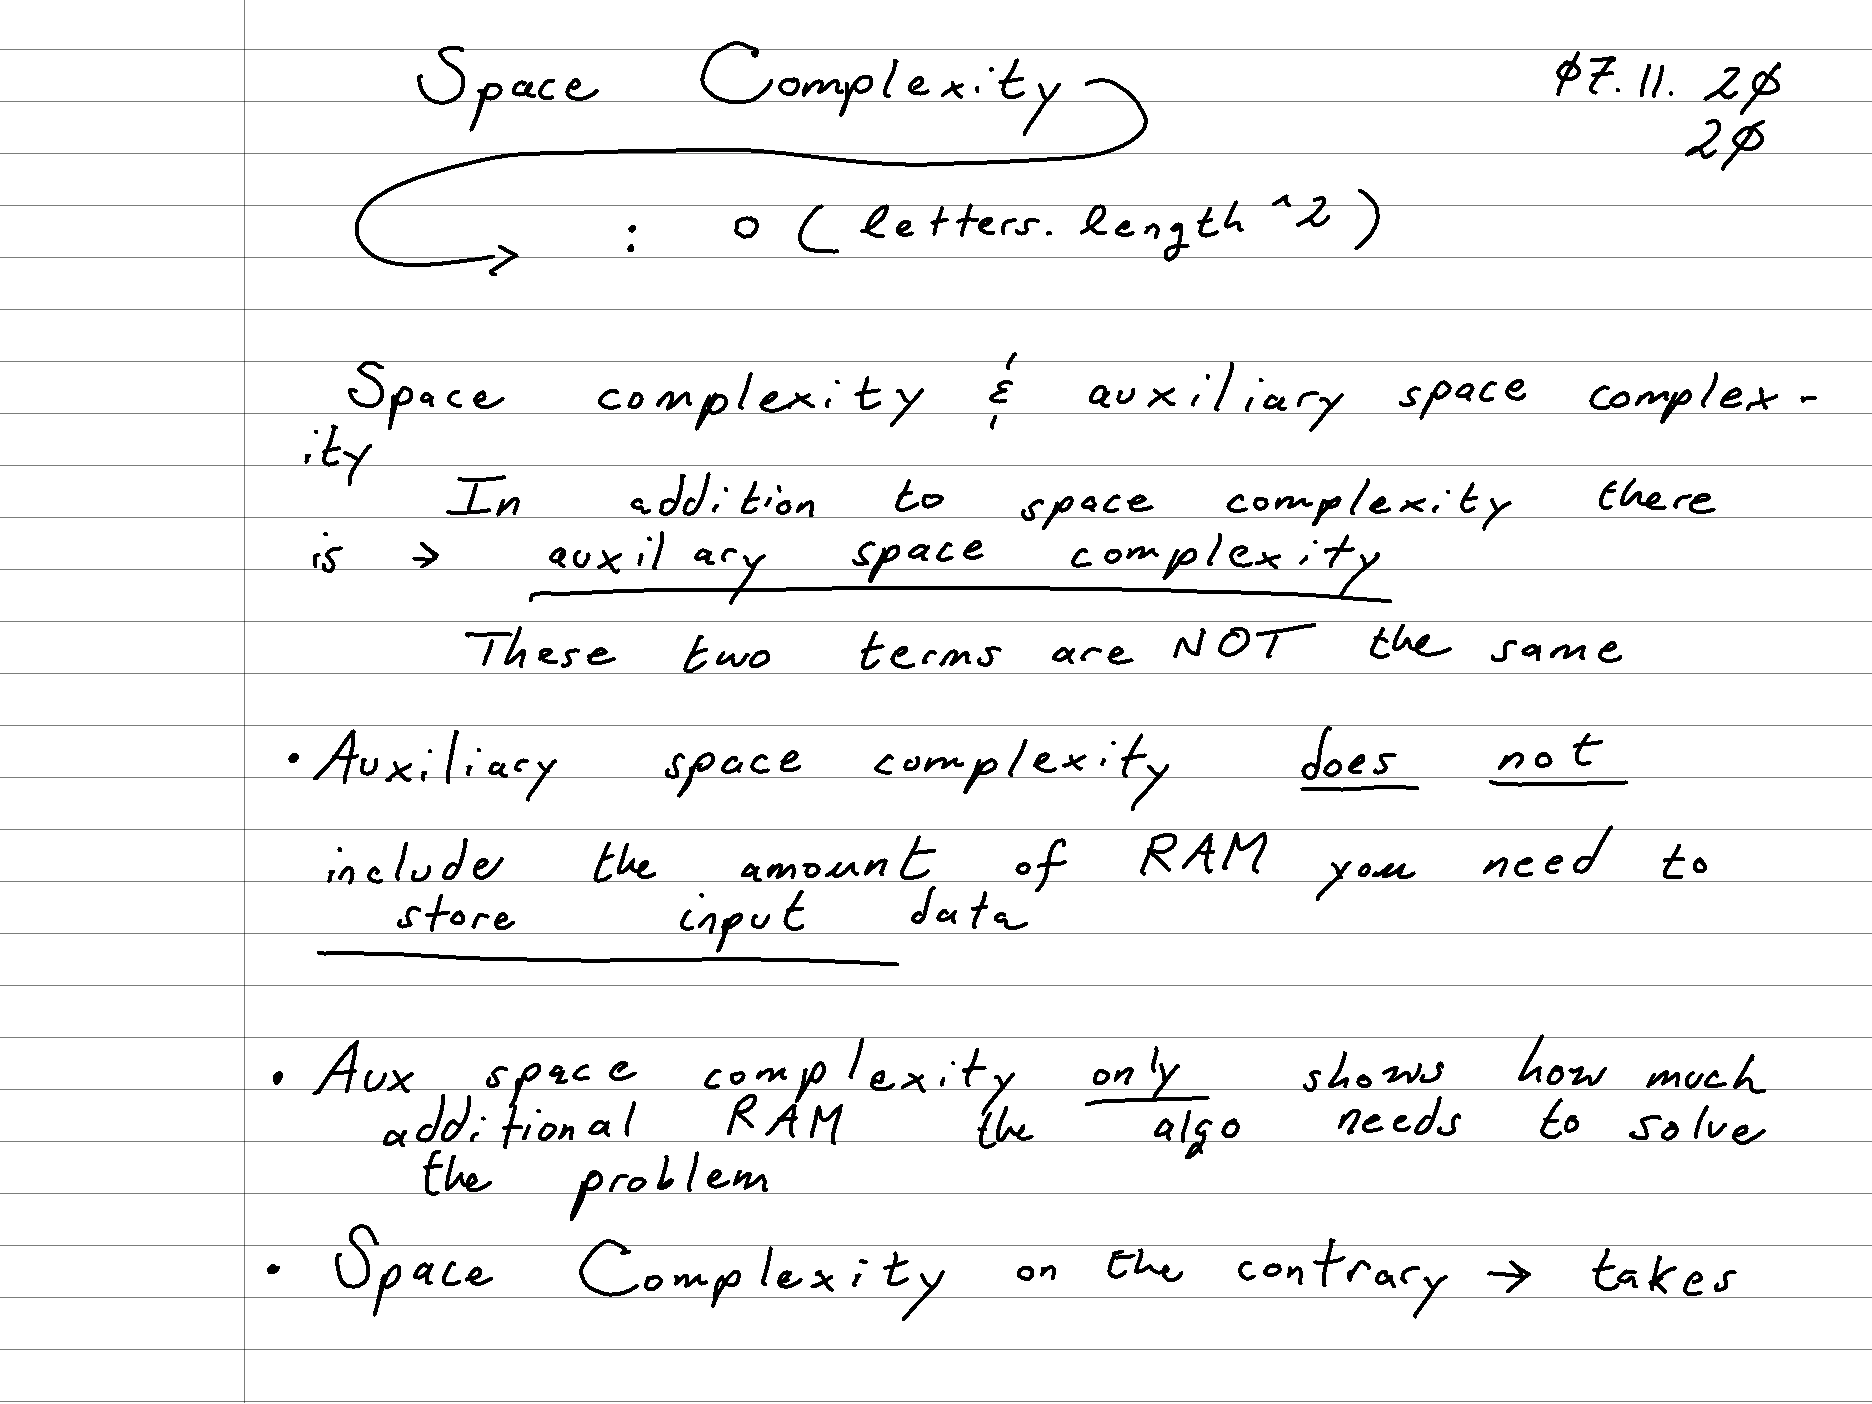 Space Complexity
ø7.11. 2ø
2ø
: o ( letters. length ^2 )
Space complexity & auxiliary space complex-
ity
In addition to space complexity there
is → auxilary space complexity
These two terms are NOT the same
• Auxiliary space complexity does not
include the amount of RAM you need to
store input data
• Aux space complexity only shows how much
additional RAM the algo needs to solve
the problem
• Space Complexity on the contrary → takes